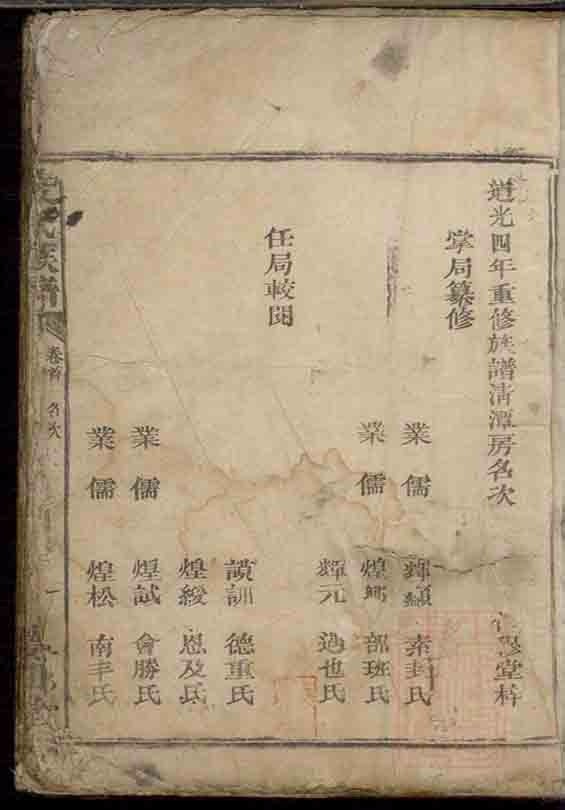 道光四年重修族譜清潭房名次
堂梓
掌局纂修
業儒 輝顯 素封氏
業儒 煌 部班氏
輝元 過也氏
任局較閱
讀訓 德重氏
煌綬 恩及氏
業儒 煌試 會勝氏
業儒 煌松 南丰氏
氏族譜
卷首 名次
一